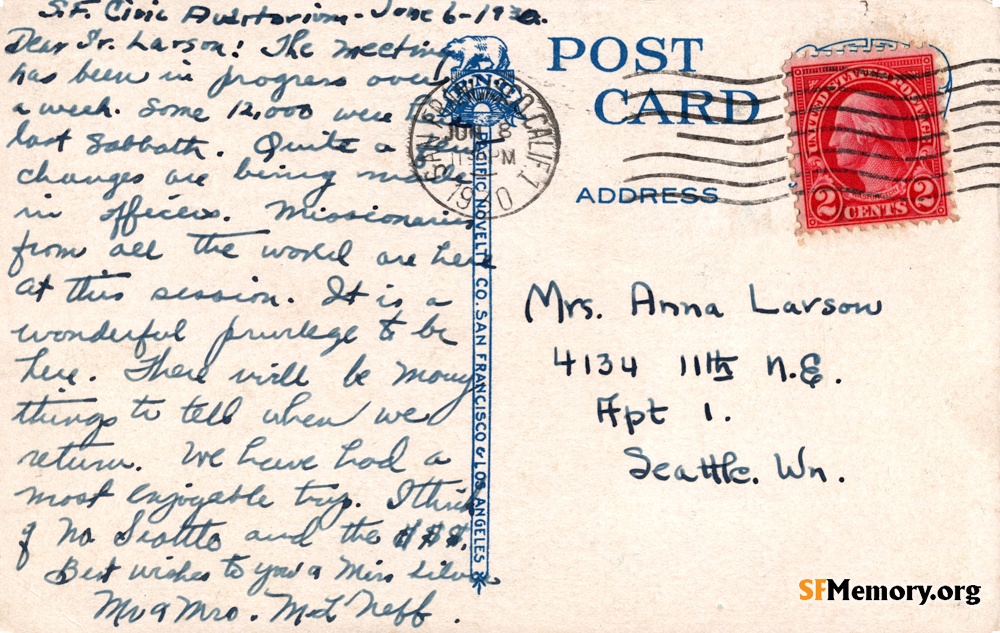 S.F. Civic Auditorium - June 6 - 1930.
Dear Sr. Larson! The meeting
has been in progress over
a week. Some 12,000 were
last Sabbath. Quite a few
changes are being made
in officers. Missionaries
from all the world are here
at this session. It is a
wonderful privilege to be
here. There will be many
things to tell when we
return. We have had a
most enjoyable trip. I think
of No Seattle and the $$$.
Best wishes to you & Miss Silva
Mr & Mrs. M L Neff.
POST
CARD
ADDRESS
SAN FRANCISCO, CALIF. 1
JUN 8
PM
1930
PACIFIC NOVELTY CO. SAN FRANCISCO & LOS ANGELES
UNITED STATES POSTAGE
2 CENTS 2
Mrs. Anna Larson
4134 11th N.E.
Apt 1.
Seattle. Wn.
SFMemory.org